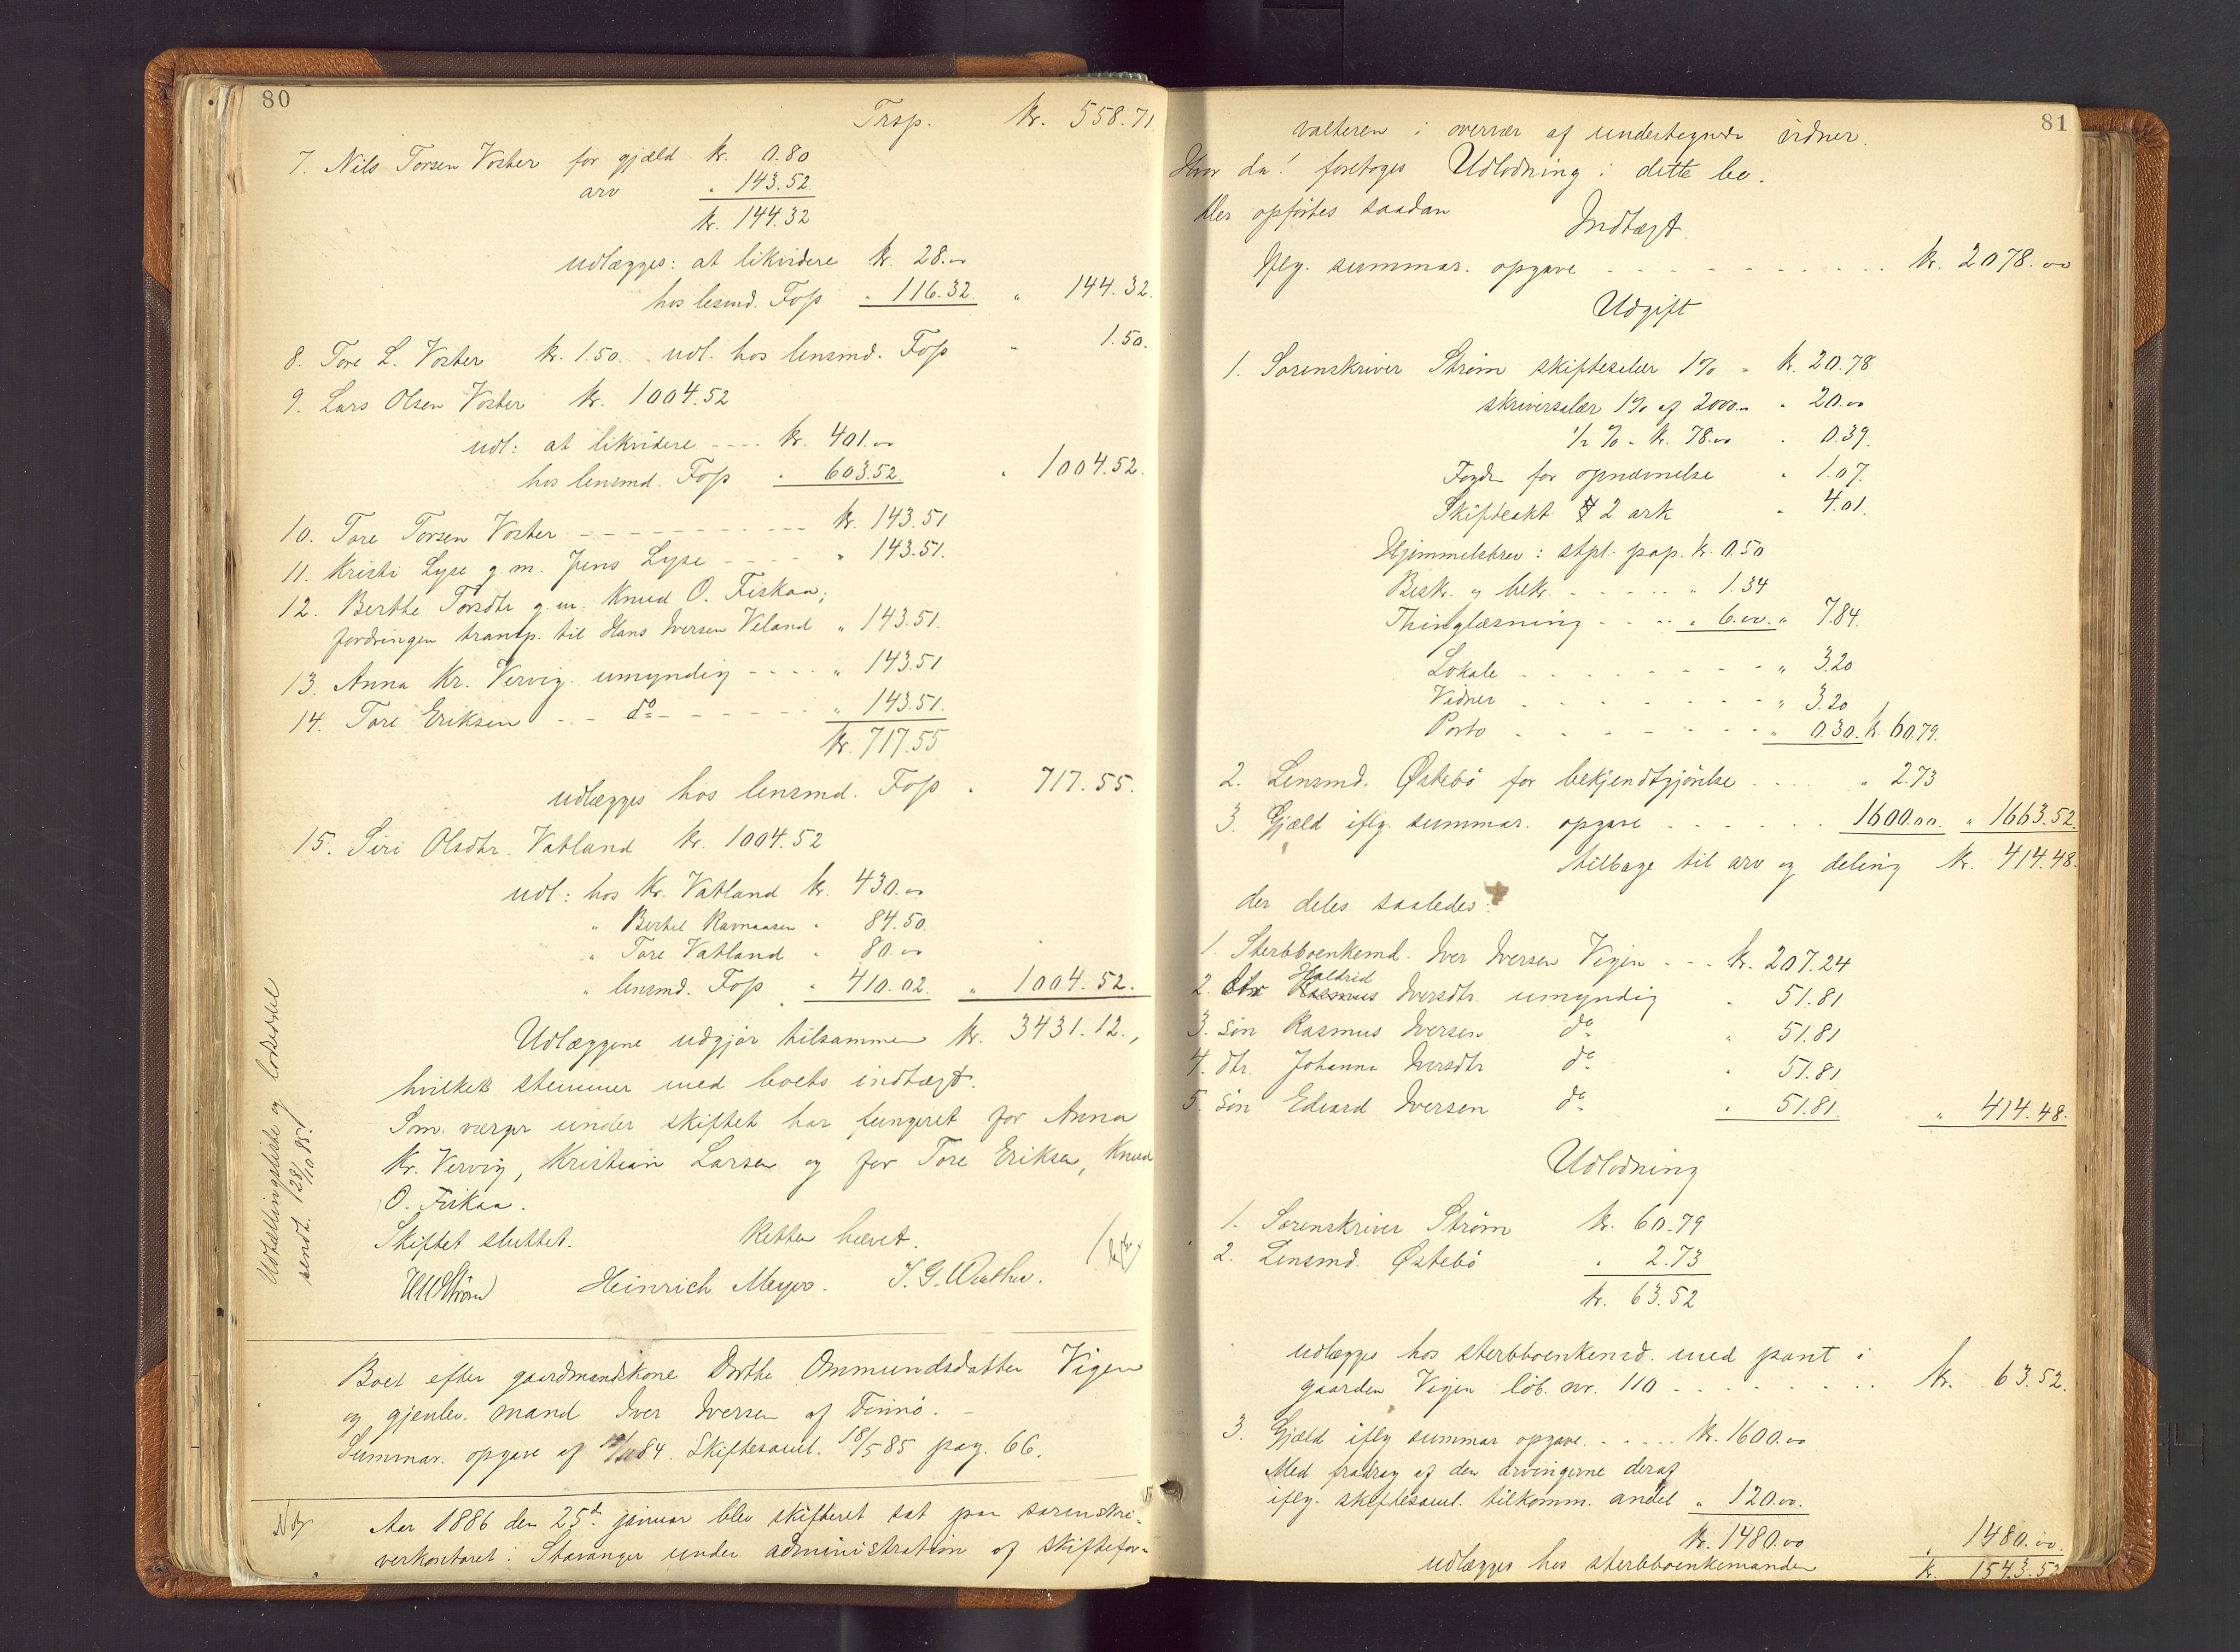 80
Trsp. kr. 558.71
7. Nils Torsen Voster for gjæld kr. 0.80
arv " 143.52
kr. 144.32
udlægges: at likvidere kr. 28.00
hos lensmd. Foss " 116.32 " 144.32.
8. Tore L. Voster kr. 1.50. udl. hos lensmd. Foss " 1.50.
9. Lars Olsen Voster kr. 1004.52
udl: at likvidere ---- kr. 401.00
hos lensmd. Foss " 603.52. " 1004.52.
10. Tore Torsen Voster - - - - - - - - kr. 143.51
11. Kristi Lyse g. m. Jens Lyse - - - " 143.51.
12. Berthe Torsdtr g. m. Knud O. Fiskaa;
fordringen transp. til Hans Iversen Veland " 143.51.
13. Anna Kr. Vervig. umyndig - - - - " 143.51
14. Tore Eriksen - - do - - - - - " 143.51.
kr. 717.55
udlægges hos lensmd. Foss " 717.55.
15. Siri Olsdtr. Vatland kr. 1004.52
udl: hos Kr. Vatland kr. 430.00
" Bertel Ravnaasen " 84.50.
" Tore Vatland " 80.00
" lensmd. Foss " 410.02. " 1004.52.
Udlæggene udgjør tilsammen kr. 3431.12.,
hvilket stemmer med boets indtægt.
Som værger under skiftet har fungeret for Anna
Kr. Vervig, Kristian Larsen og for Tore Eriksen, Knud
O. Fiskaa.
Skiftet sluttet. Retten hævet.
Heinrich Meyer.
Udtællingsliste og lodseddel
sendt. 28/10 85.
Boet efter gaardmandskone Dorthe Ommundsdatter Vigen
og gjenlev. mand Iver Iversen af Finnø. -
Summar. opgave af 84. Skiftesaml. 18/5 85 pag. 66.
Aar 1886 den 25de januar blev skifteret sat paa sorenskri-
verkontoret i Stavanger under administration af skiftefor-
81
valteren i overvær af undertegnede vidner.
Hvor da! foretoges Udlodning i dette bo.
Der opførtes saadan
Indtægt.
Iflg. summar. opgave - - - - - - - - - - kr. 2078.00
Udgift
1. Sorenskriver Strøm skiftesalær 1% " kr. 20.78
skriversalær 1% af 2000.00 " 20.00
1/2 % " kr. 78.00 " 0.39.
Fogden for opnævnelse " 1.07.
Skifteakt 2 ark " 4.01.
Hjemmelsbrev: stpl. pap. kr. 0.50
Besk. og bekr. - - - - - " 1.34
Thinglæsning - - - - " 6.00. " 7.84.
Lokale - - - - - - - - " 3.20
Vidner - - - - - - - - " 3.20
Porto - - - - - - - - " 0.30. kr. 60.79.
2. Lensmd. Østebø for bekjendtgjørelse - - - - " 2.73
3. Gjæld iflg. summar. opgave - - - - - - 1600.00. " 1663.52.
tilbage til arv og deling kr. 414.48.
der deles saaledes:
1. Sterbboenkemd. Iver Iversen Vigen - - - kr. 207.24
2. Dtr Haldrid Iversdtr. umyndig " 51.81
3. søn Rasmus Iversen do " 51.81
4. dtr. Johanna Iversdtr do " 51.81
5. søn Edvard Iversen do " 51.81. " 414.48.
Udlodning
1. Sorenskriver Strøm kr. 60.79
2. Lensmd. Østebø " 2.73
kr. 63.52
udlægges hos sterbboenkemd. med pant i
gaarden Vigen løb. nr. 110 - - - - - - - - kr. 63.52.
3. Gjæld iflg summar opgave. - - - - kr. 1600.00
Med fradrag af den arvingerne deraf
iflg. skiftesaml. tilkomm. andel " 120.00.
kr. 1480.00 " 1480.00.
udlægges hos sterbboenkemanden kr. 1543.52